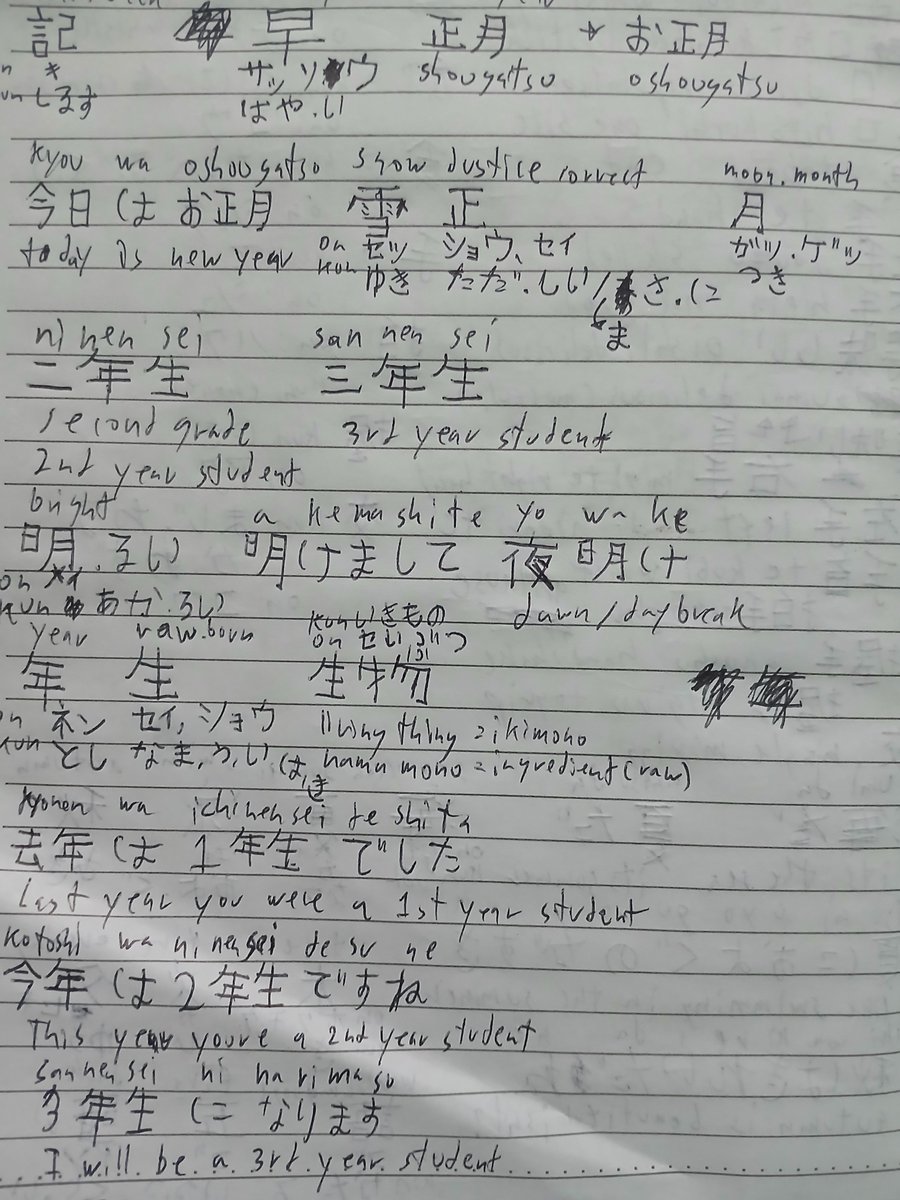 記 早 正月 → お正月
キ サッソウ shougatsu oshougatsu
しるす はや.い
kyou wa oshougatso snow Justice correct moon.month
今日は お正月 雪 正 月
today is new year on セツ ショウ、セイ ガツ.ゲツ
kun ゆき ただ.しい/まさ.に つき
ni nen sei san nen sei
二年生 三年生
second grade 3rd year student
2nd year student
bright a kemashite yo wa ke
明.るい 明けまして 夜明け
on
kun あか.るい kunいきもの dawn/daybreak
year raw.born on せいぶつ
年 生 生物
on ネン セイ,ショウ living thing = ikimono
kun とし なま,う,い,は,き namamono = ingredient(raw)
kyonen wa ichinensei de shita
去年は 1年生 でした
Last year you were a 1st year student
kotoshi wa ni nensei de su ne
今年は2年生ですね
This year youre a 2nd year student
sannensei ni narimasu
3年生になります
I will be a 3rd year student